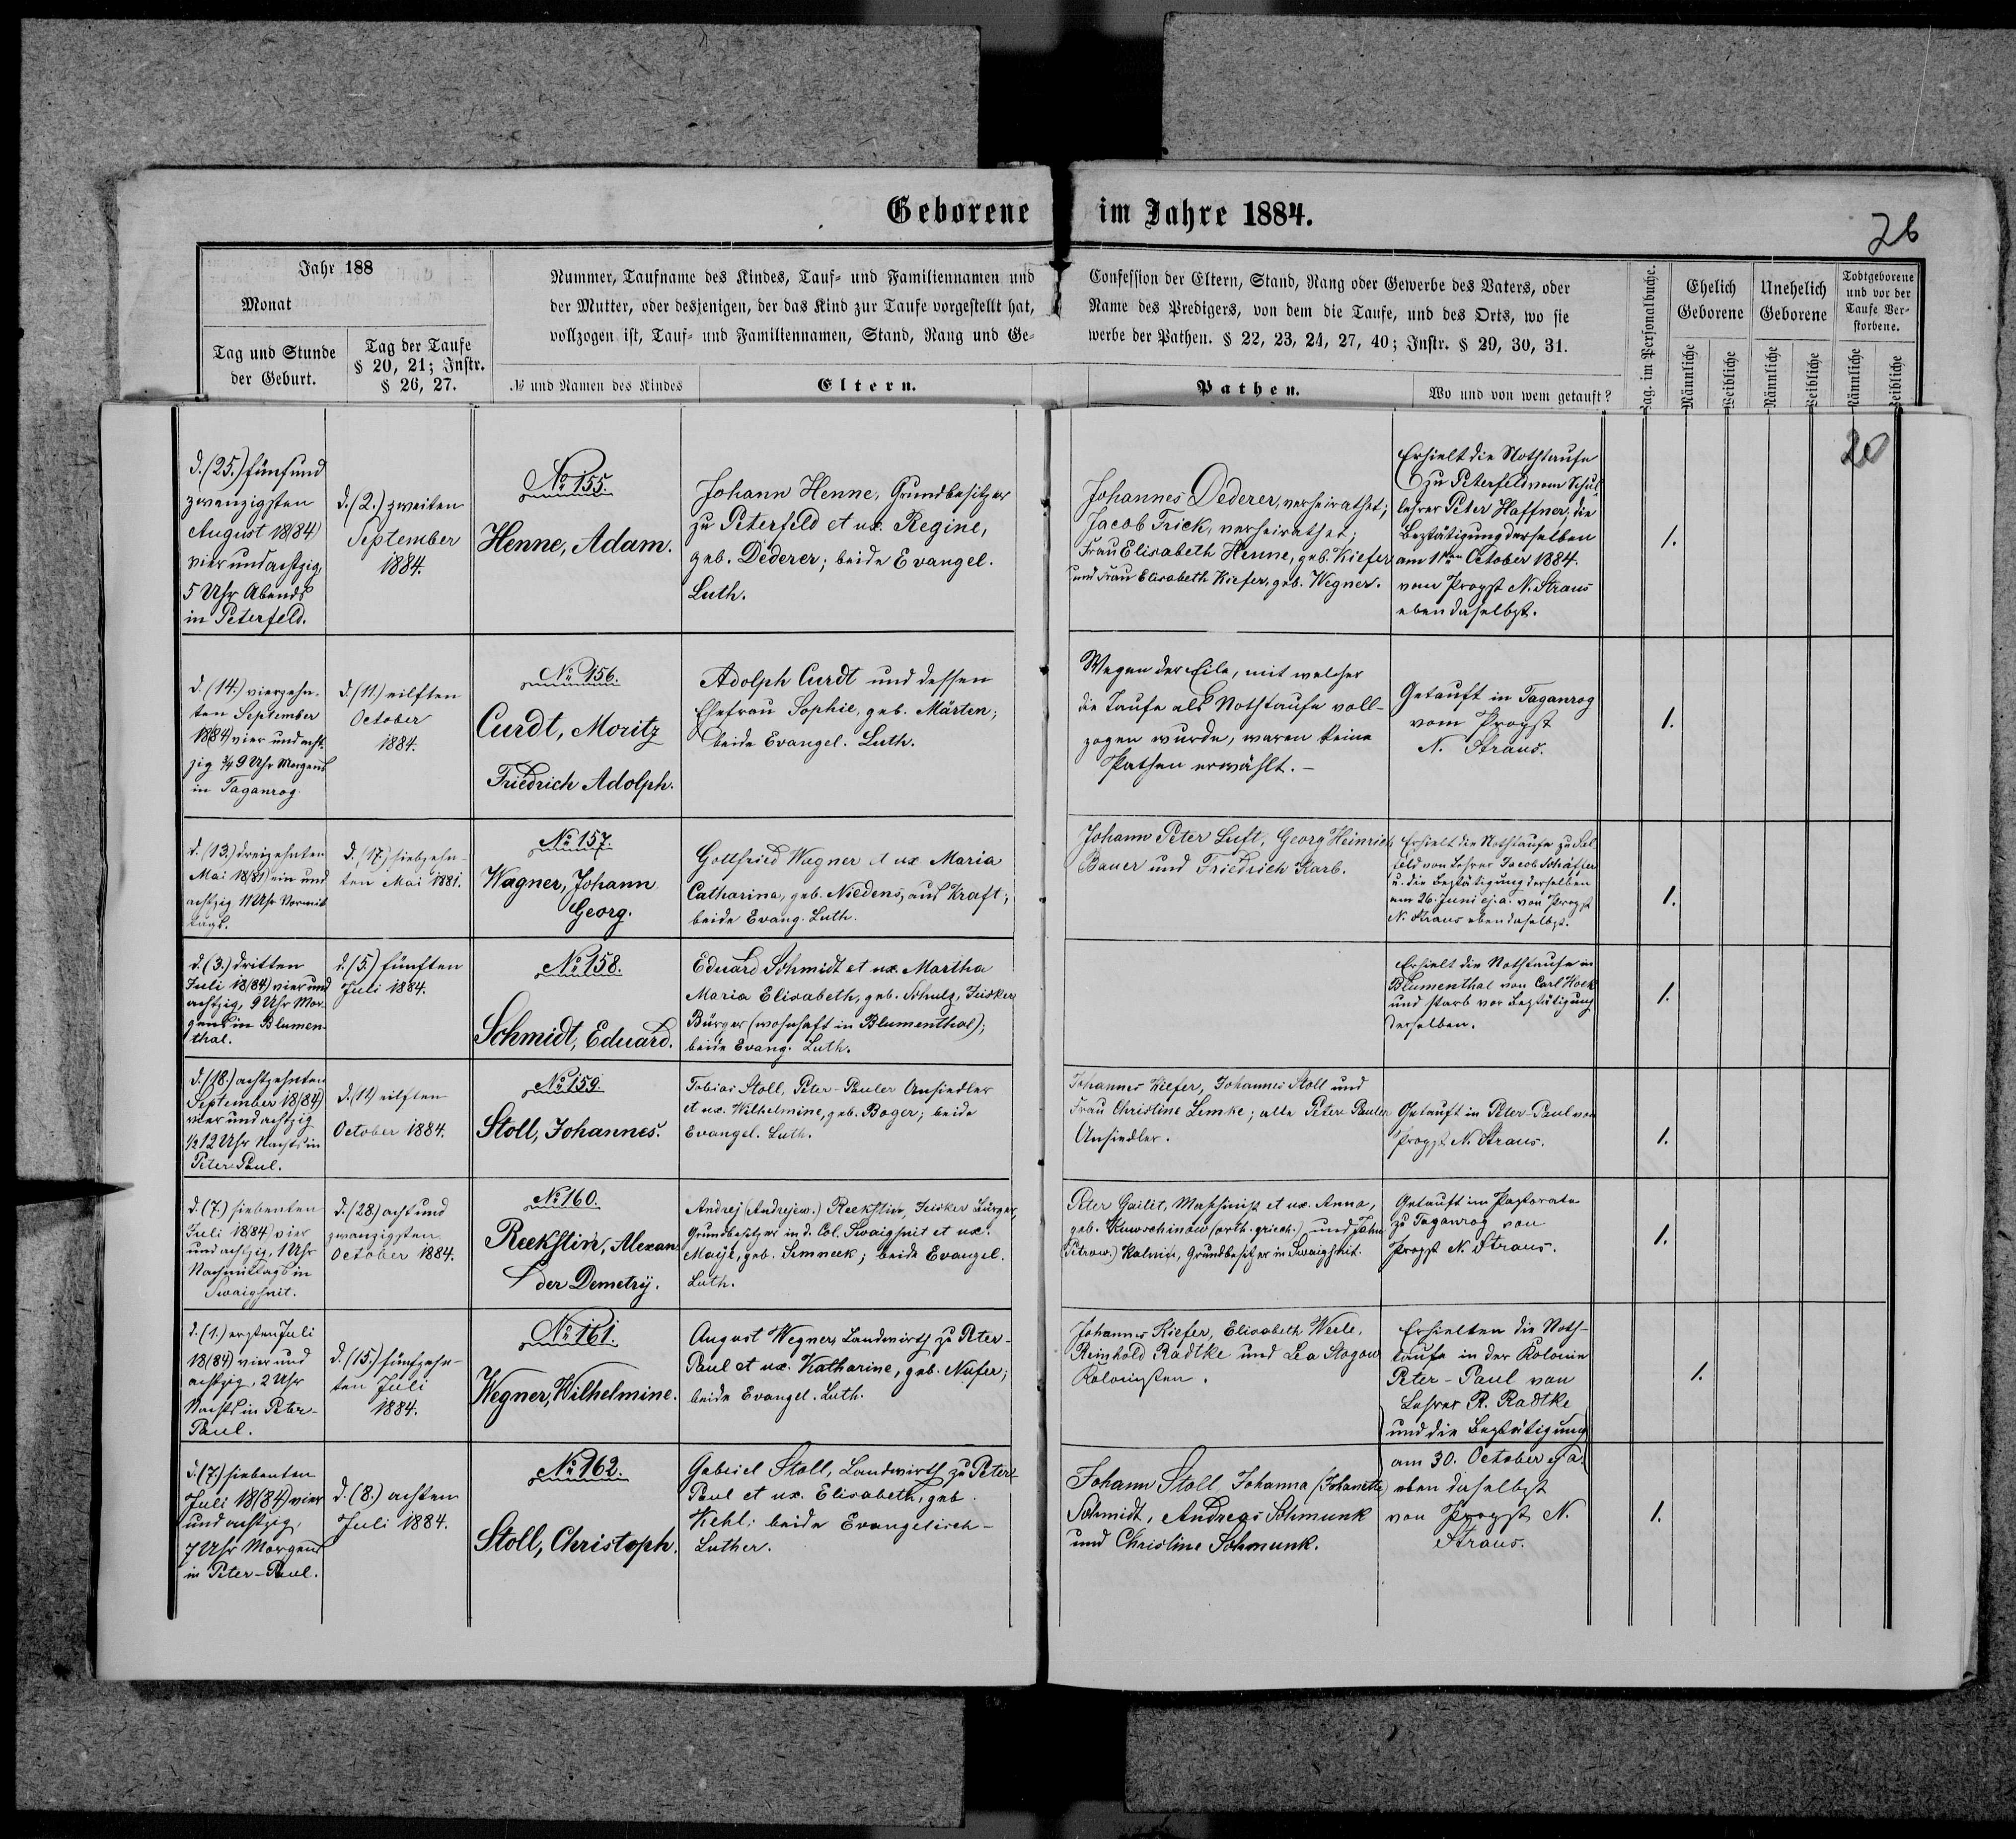 Geborene im Jahre 1884.
26
Jahr 188
Monat
Tag und Stunde
der Geburt.
Tag der Taufe
§ 20, 21; Instr.
§ 26, 27.
Nummer, Taufname des Kindes, Tauf- und Familiennamen und
der Mutter, oder desjenigen, der das Kind zur Taufe vorgestellt hat,
vollzogen ist, Tauf- und Familiennamen, Stand, Rang und Ge-
№ und Namen des Kindes
Eltern.
Confession der Eltern, Stand, Rang oder Gewerbe des Vaters, oder
Name des Predigers, von dem die Taufe, und des Orts, wo sie
werbe der Pathen. § 22, 23, 24, 27, 40; Instr. § 29, 30, 31.
Pathen.
Wo und von wem getauft?
Pag. im Personalbuche.
Ehelich
Geborene
Unehelich
Geborene
Todtgeborene
und vor der
Taufe Ver-
storbene.
Männliche
Weibliche
Männliche
Weibliche
Männliche
Weibliche
20
d. (25.) fünfund
zwanzigsten
August 18(84)
vier und achtzig,
5 Uhr Abends
in Peterfeld.
d. (2.) zweiten
September
1884.
№ 155.
Henne, Adam.
Johann Henne, Grundbesitzer
zu Peterfeld et ux. Regine,
geb. Dederer; beide Evangel.
Luth.
Johannes Dederer, verheirathet;
Jacob Frick, verheirathet;
Frau Elisabeth Henne, geb. Kiefer
und Frau Elisabeth Kiefer, geb. Wegner.
Erhielt die Nothtaufe
zu Peterfeld vom Schul-
lehrer Peter Haffner, die
Bestätigung derselben
am 1ten October 1884.
vom Propst N. Straus
ebendaselbst.
1.
d. (14.) vierzehn-
ten September
18(84) vier und acht-
zig ¾ 9 Uhr Morgens
in Taganrog.
d. (11.) eilften
October
1884.
№ 156.
Curdt, Moritz
Friedrich Adolph.
Adolph Curdt und dessen
Ehefrau Sophie, geb. Märten;
beide Evangel. Luth.
Wegen der Eile, mit welcher
die Taufe als Nothtaufe voll-
zogen wurde, waren keine
Pathen erwählt. –
Getauft in Taganrog
vom Propst
N. Straus.
1.
d. (13.) dreizehnten
Mai 18(81) ein und
achtzig 11 Uhr Vormit
tags.
d. (17.) siebzehn-
ten Mai 1881.
№ 157.
Wagner, Johann
Georg.
Gottfried Wagner et ux Maria
Catharina, geb. Niedens, aus Kraft;
beide Evang. Luth.
Johann Peter Luft, Georg Heinrich
Bauer und Friedrich Karb.
Erhielt die Nothtaufe zu
feld von Lehrer Jacob Schäfer
u. die Bestätigung derselben
am 26. Juni ej. a. von Propst
N. Straus ebendaselbst.
1.
d. (3.) dritten
Juli 18(84) vier und
achtzig, 9 Uhr Mor-
gens in Blumen-
thal.
d. (5.) fünften
Juli 1884.
№ 158.
Schmidt, Eduard.
Eduard Schmidt et ux. Martha
Maria Elisabeth, geb. Schulz, Jeisker
Bürger (wohnhaft in Blumenthal);
beide Evang. Luth.
Erhielt die Nothtaufe in
Blumenthal von Carl Hock
und starb vor Bestätigung
derselben.
1.
d. (18.) achtzehnten
September 18(84)
vier und achtzig
½ 12 Uhr Nachts in
Peter-Paul.
d. (11) eilften
October 1884.
№ 159.
Stoll, Johannes.
Tobias Stoll, Peter-Pauler Ansiedler
et ux. Wilhelmine, geb. Boger; beide
Evangel. Luth.
Johannes Kiefer, Johannes Stoll und
Frau Christine Lemke; alle Peter Pauler
Ansiedler.
Getauft in Peter-Paul von
Propst N. Straus.
1.
d. (7.) siebenten
Juli 18(84) vier
und achtzig, 1 Uhr
Nachmittags in
Swaigsnit.
d. (28.) acht und
zwanzigsten
October 1884.
№ 160.
Reekstin, Alexan
der Demetrij.
Andrej (Andrejew.) Reekstin, Jeisker Bürger,
Grundbesitzer in d. Col. Swaigsnit et ux.
Maije, geb. Semneek; beide Evangel.
Luth.
Peter Gailit, Maschinist et ux. Anna,
geb. (orth. griech.) und Jahn
(Petrow.) Kalnin, Grundbesitzer in Swaigsnit.
Getauft im Pastorate
zu Taganrog von
Propst N. Straus.
1.
d. (1.) ersten Juli
18(84) vier und
achtzig, 2 Uhr
Nachts in Peter-
Paul.
d. (15.) fünfzehn-
ten Juli
1884.
№ 161.
Wegner, Wilhelmine.
August Wegner, Landwirth zu Peter-
Paul et ux. Katharine, geb. Nufer;
beide Evangel. Luth.
Johannes Kiefer, Elisabeth Werle,
Reinhold Radtke und Lea Stogow
Kolonisten.
Erhielten die Noth-
taufe in der Kolonie
Peter-Paul von
Lehrer R. Radtke
und die Bestätigung
am 30. October ej. a.
ebendaselbst
von Propst N.
Straus.
1.
d. (7.) siebenten
Juli 18(84) vier
und achtzig,
7 Uhr Morgens
in Peter-Paul.
d. (8.) achten
Juli 1884.
№ 162.
Stoll, Christoph.
Gabriel Stoll, Landwirth zu Peter-
Paul et ux. Elisabeth, geb.
Kehl; beide Evangelisch-
Luther.
Johann Stoll, Johanna (Johanette)
Schmidt, Andreas Schmunk
und Christine Schmunk.
1.